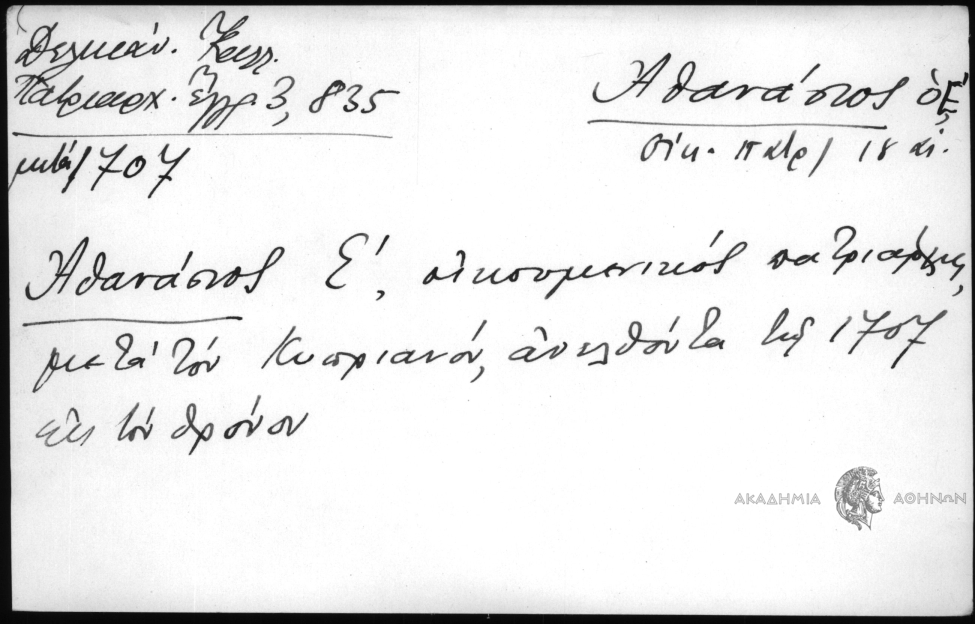 Δελικάν. Καλλ.
Πατριαρχ. Ἔγγρ. 3, 835
μετά 1707
Ἀθανάσιος ὁ Ε΄,
Οἰκ. πατρ/ 18 αἰ.
Ἀθανάσιος Ε΄, οἰκουμενικός πατριάρχης,
μετά τόν Κυπριανόν, ἀνελθόντα τῷ 1707
εἰς τόν θρόνον
ΑΚΑΔΗΜΙΑ ΑΘΗΝΩΝ